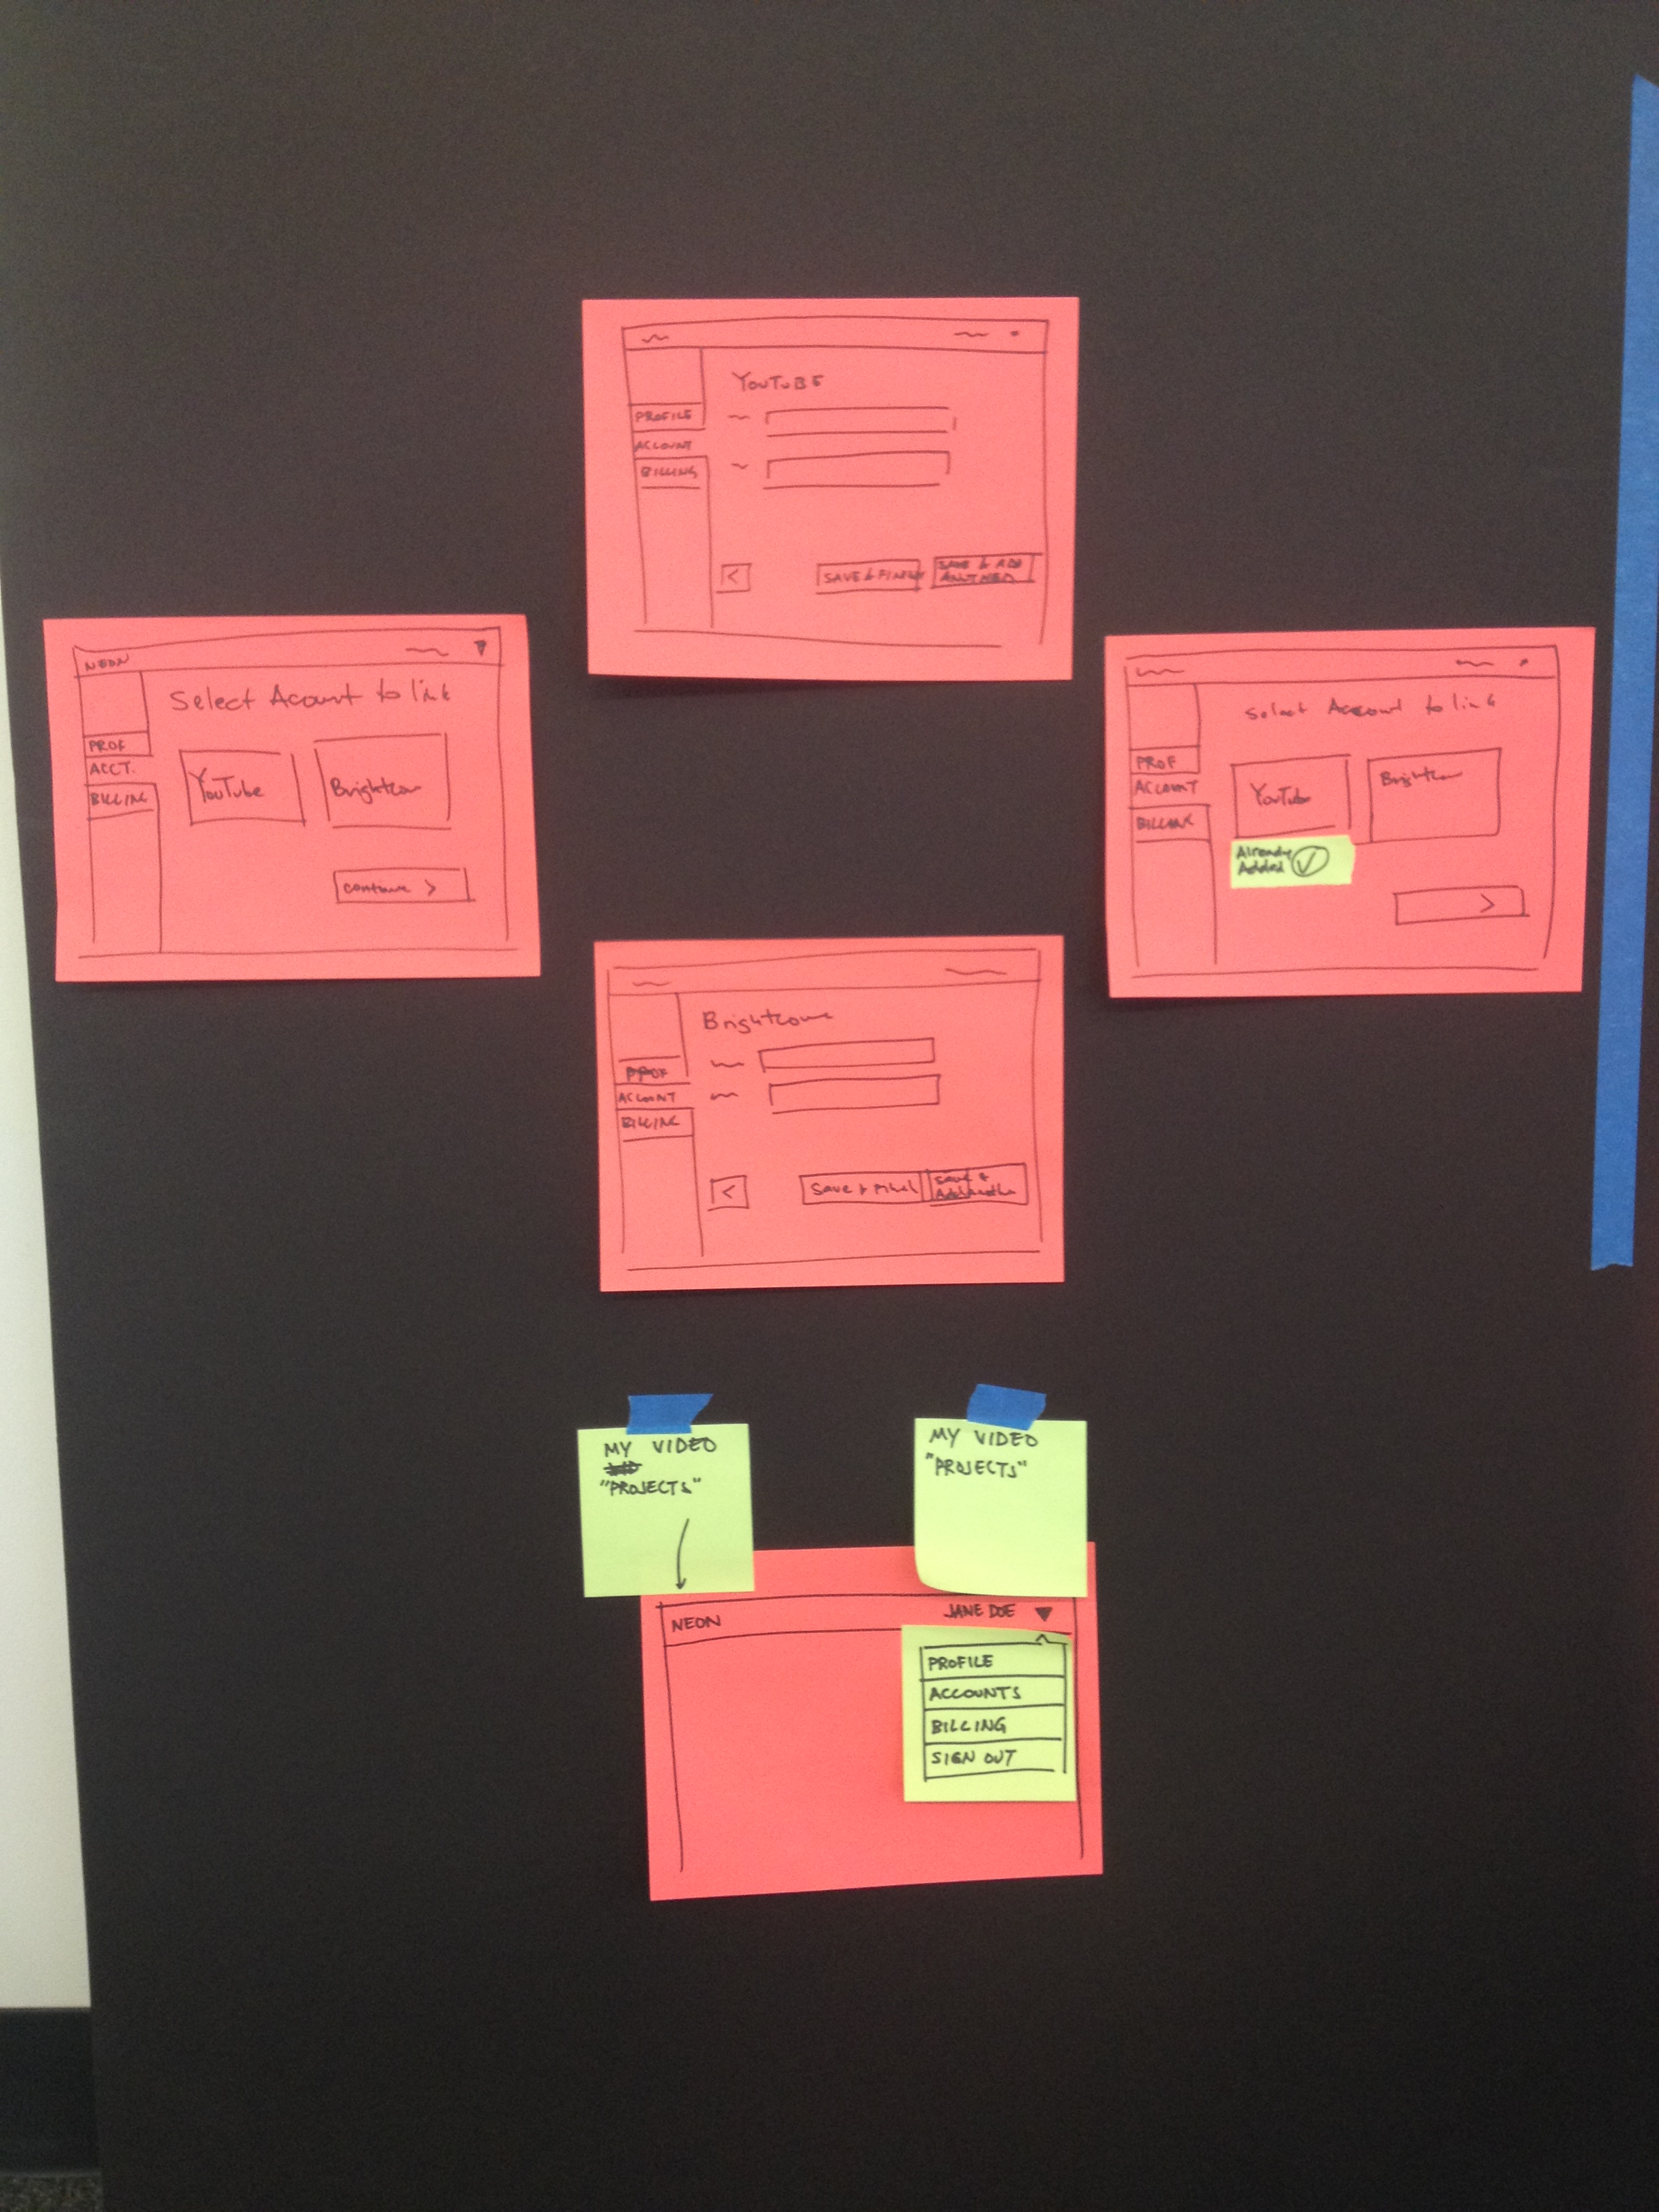 YOUTUBE
PROFILE
ACCOUNT
BILLING
<
SAVE & FINISH
SAVE & ADD
ANOTHER
NEON
Select Acount to link
PROF
ACCT.
BILLING
YouTube
Brightcov
continue >
Select Account to link
PROF
ACCOUNT
BILLING
YouTube
Brightcov
Already
Added
>
Brightcove
PROF
ACCOUNT
BILLING
<
Save & Finish
Save &
Add Another
MY VIDEO
"PROJECTS"
MY VIDEO
"PROJECTS"
NEON
JANE DOE
PROFILE
ACCOUNTS
BILLING
SIGN OUT